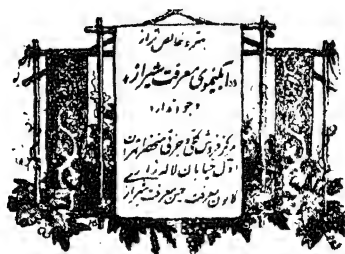 بهتر و خالص تر از
«آبلیموی معرفت شیراز»
«جو ندارد»
مرکز فروش کلی و جزئی منحصر تهران
اول خیابان لاله زار
کانون معرفت حسن معرفت شیراز